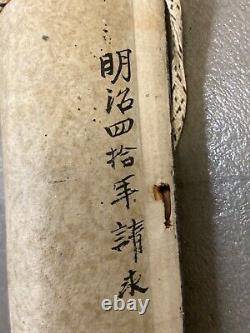 明治四拾年請求